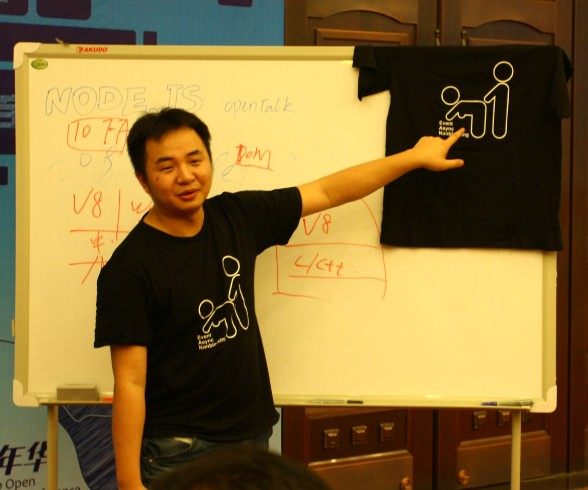 AKUBO
NODE.JS openTalk
TO FA
DOM
V8
V8
C/C++
Event
Async
Nonblocking
Event
Async
Nonblocking
年华
Open